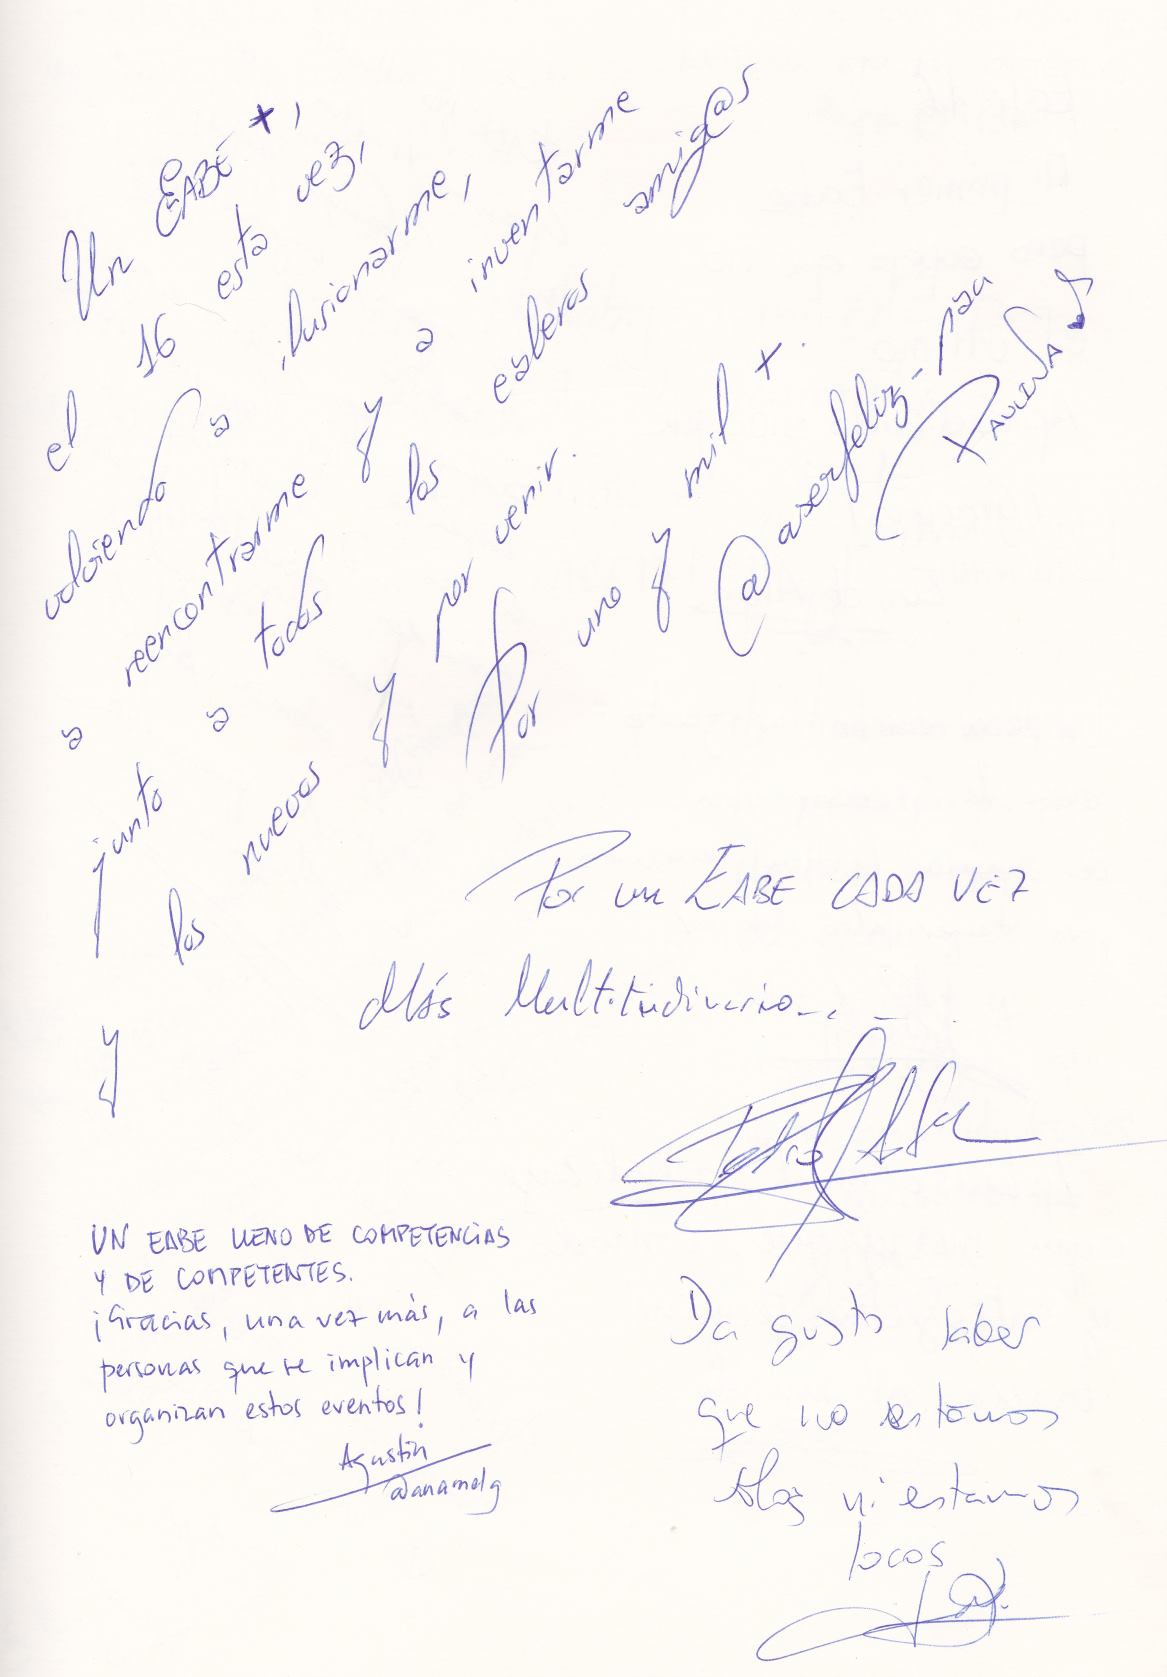 Un EABE +,
el 16 esta vez,
volviendo a ilusionarme,
a reencontrarme y a inventarme
junto a todos los amig@s
y los nuevos y por venir.
Por uno y mil +.
Por un EABE CADA VEZ
Más
UN EABE LLENO DE COMPETENCIAS
Y DE COMPETENTES.
¡Gracias, una vez más, a las
personas que se implican y
organizan estos eventos!
Agustín
@anamelg
Da gusto saber
que no estamos
solos ni estamos
locos